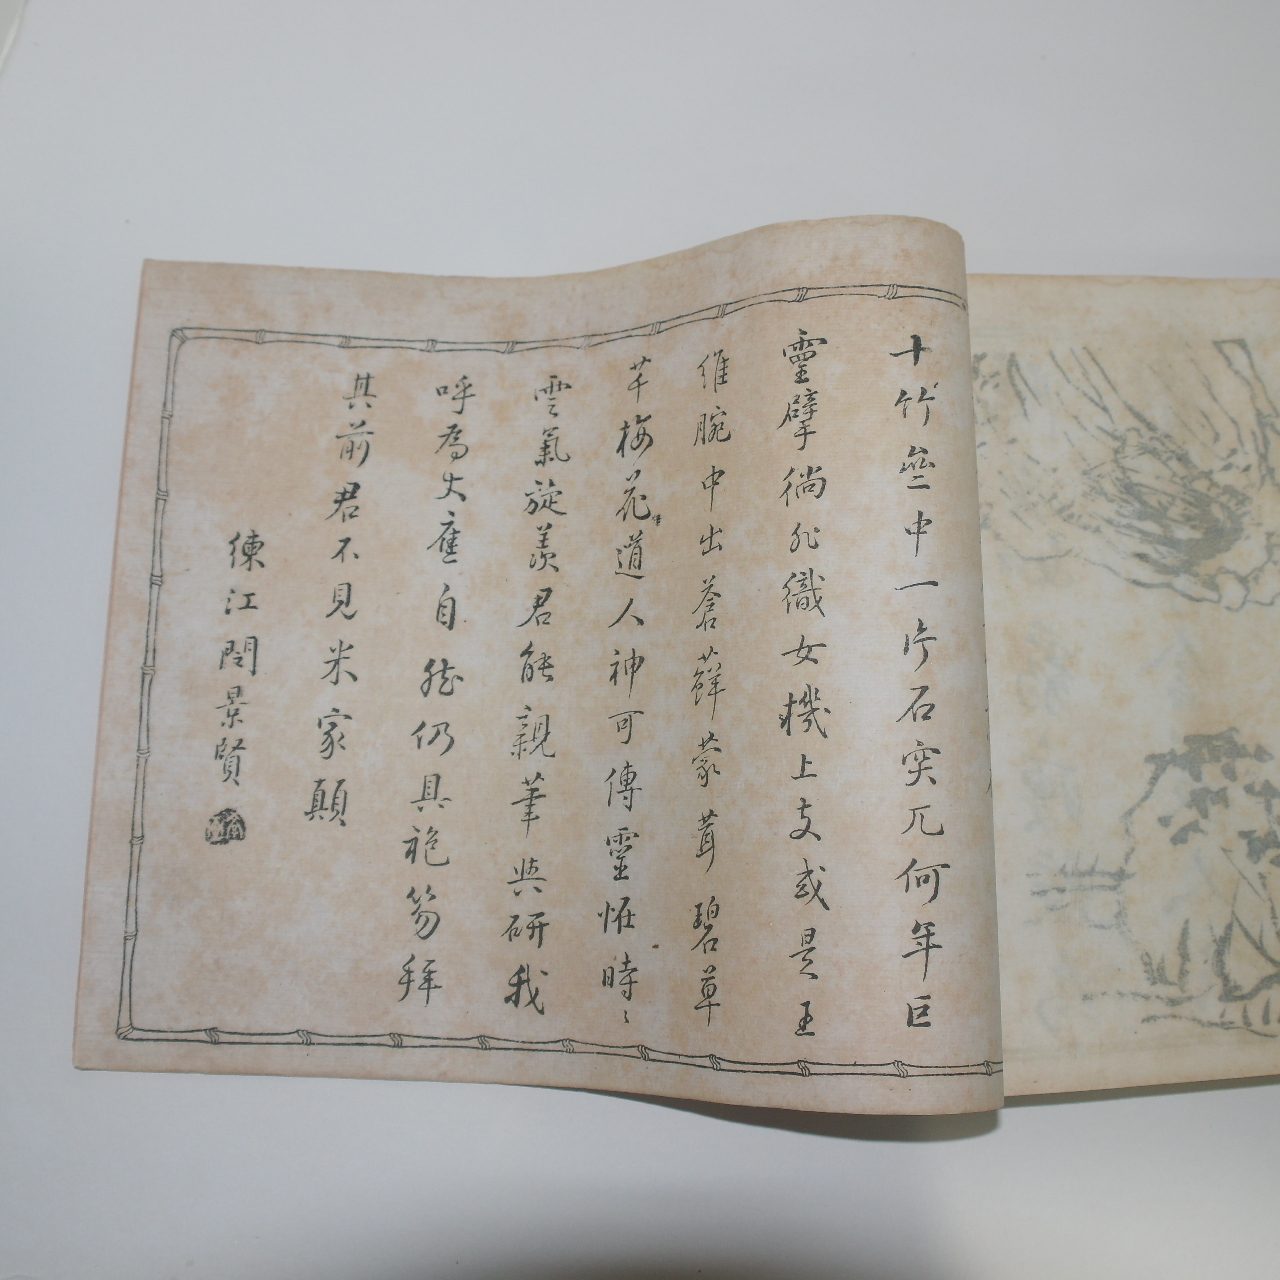 十竹亝中一片石突兀何年巨
靈擘徜非織女機上支或是王
維腕中出蒼蘚蒙茸碧草
芊梅花道人神可傳靈怪時〻
雲氣旋羨君能親筆與研我
呼為丈應自然仍具袍笏拜
其前君不見米家顛
練江閔景賢